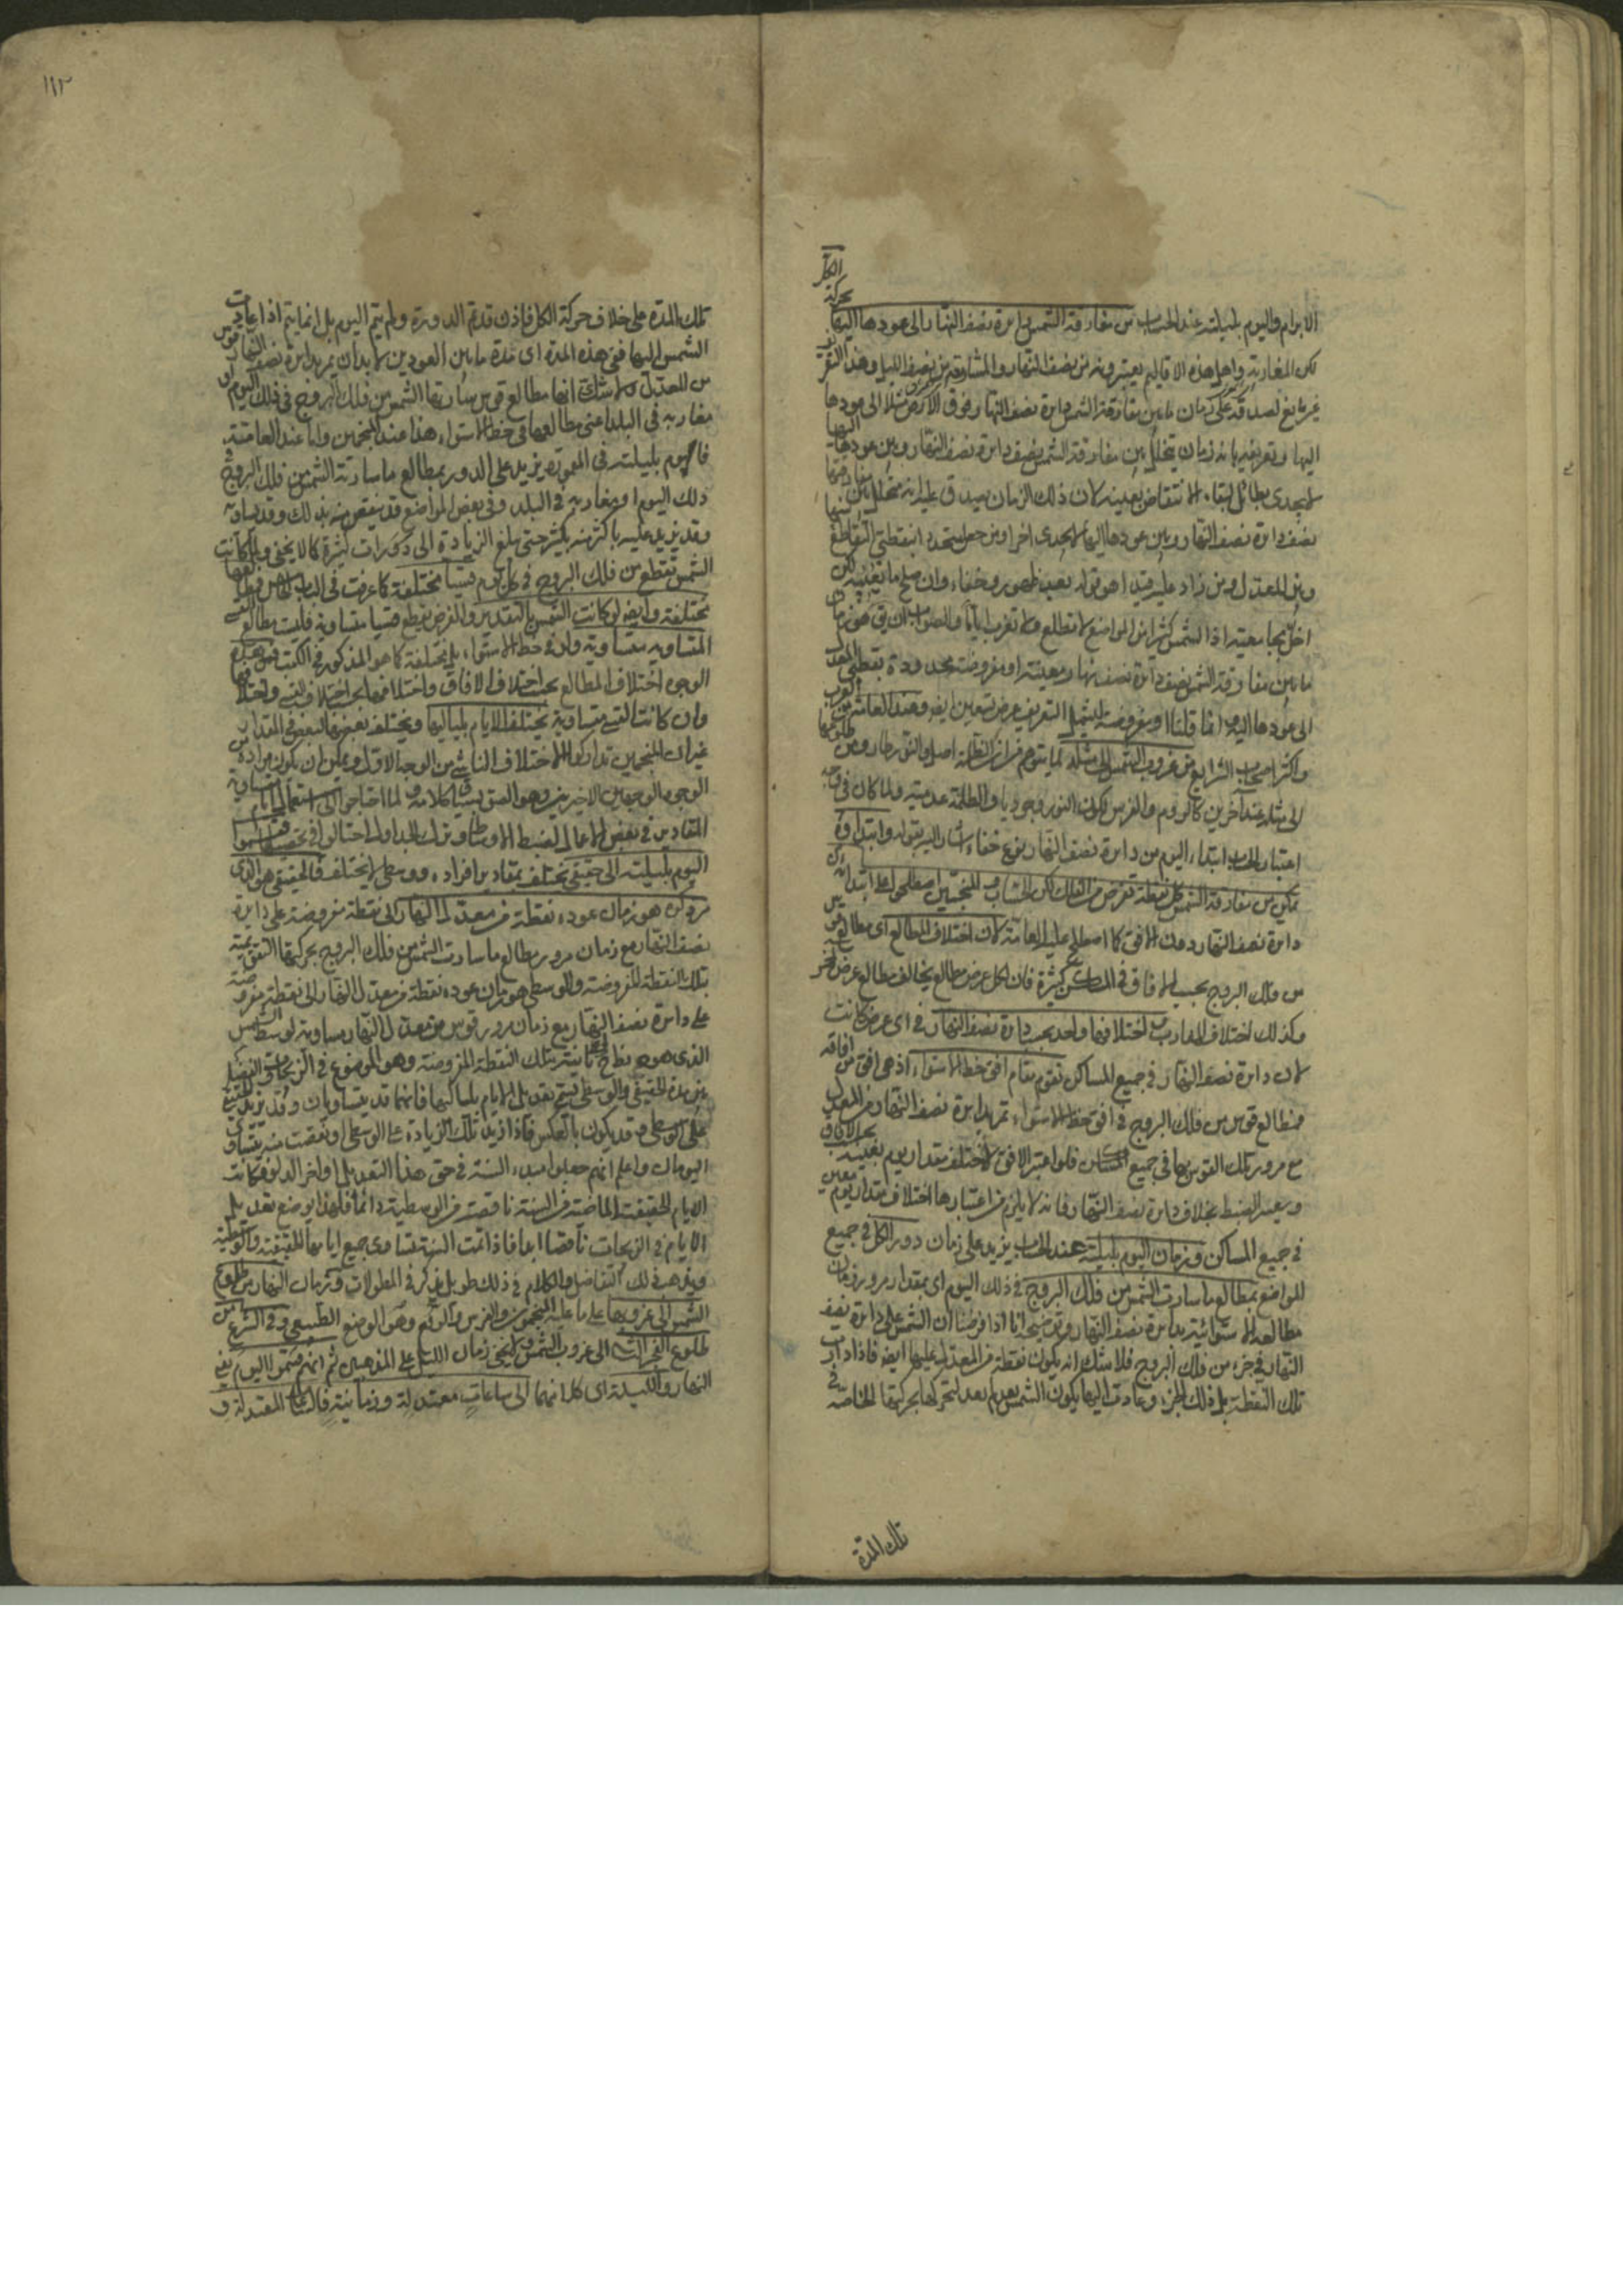 الابرام واليوم بليلته عند الحساب من مفارقة الشمس دايرة نصف النهار الى عودها اليها بحركة الكل
لكن المغاربة واهل هذه الاقاليم يعتبرونه من نصف النهار والمشارقة من نصف الليل وهذا التعر
غير مانع لصدقه على زمان ما بين مفارقة الشمس دايرة نصف النهار فوق الارض مثلا الى عودها
اليها وتعريفه بانه زمان يتخلل بين مفارقة الشمس نصف دايرة نصف النهار وبين عودها اليها
لا يجدى بطائل لبقاء الانتقاض بعينه لان ذلك الزمان يصدق عليه انه متخلل بين مفارقتها
نصف دايرة نصف النهار وبين عودها اليها
وبين المعدل ومن زاد عليه قيدا هو قوله بعد ظهور وخفاء وان صلح ما بقي لكن
اخل بجامعيته اذ الشمس فى كثير من المواضع لا تطلع ولا تغرب اياما والصواب ان يقال هو زمان
ما بين مفارقة الشمس نصف دايرة نصف نهار معينة او مفروضة محدودة بقطبى المعدل
الى عودها اليه انما قلنا او مفروضة ليشمل التعريف عرض تسعين ايضا وعند العامة من العرب
واكثر اصحاب الشرايع من غروب الشمس الى مثله لما يتوهم من ان الظلمة اصل والنور طار ومن طلوعها
الى مثله عند آخرين كالروم والفرس لكون النور وجوديا والظلمة عدمية ولما كان فى وجه
اعتبار الحساب ابتداء اليوم من دايرة نصف النهار نوع خفاء اشار اليه بقوله وابتداؤه
يمكن من مفارقة الشمس كل نقطة تفرض من الفلك لكن الحساب والمنجمين اصطلحوا على ابتدائه من
دايرة نصف النهار دون الافق كما اصطلح عليه العامة لان اختلاف المطالع اى مطالع قوس
من فلك البروج بحسب الافاق فى المساكن كثيرة فان لكل عرض مطالع يخالف مطالع عرض آخر
وكذلك اختلاف المغارب واختلافها واحد بحسب دايرة نصف النهار فى اى عرض كانت
لان دايرة نصف النهار فى جميع المساكن تقوم مقام افق خط الاستواء اذ هى افق من افاقه
فمطالع قوس من فلك البروج فى افق خط الاستواء تمر بدايرة نصف النهار من المعدل
مع مرور تلك القوس بها فى جميع المساكن فلو اعتبر الافق لاختلف مقدار يوم بعينه بحسب الافاق
ويعسر الضبط بخلاف دايرة نصف النهار فانه لا يلزم من اعتبارها اختلاف مقدار يوم معين
فى جميع المساكن وزمان اليوم بليلته عند الحساب يزيد على زمان دور الكل فى جميع
المواضع بمطالع ما سارت الشمس من فلك البروج فى ذلك اليوم اى بمقدار مرور زمان
مطالعه الاستوائية بدايرة نصف النهار وتوضيحه انا اذا فرضنا ان الشمس على دايرة نصف
النهار فى جزء من فلك البروج فلا شك انه يكون نقطة من المعدل عليها ايضا فاذا دارت
تلك النقطة بل ذلك الجزء وعادت اليها يكون الشمس بعد لم يعد لتحركها بحركتها الخاصة فى
تلك المدة
١١٢
تلك المدة على خلاف حركة الكل فاذن قد تم الدورة ولم يتم اليوم بل انما يتم اذا عادت
الشمس اليها ففى هذه المدة اى مدة ما بين العودين لا بد ان يمر بدايرة نصف النهار قوس
من المعدل ولا شك انها مطالع قوس سارتها الشمس من فلك البروج فى ذلك اليوم او
مغاربه فى البلد اعنى مطالعها فى خط الاستواء هذا عند المنجمين واما عند العامة
فاليوم بليلته فى المعمورة يزيد على الدور بمطالع ما سارته الشمس من فلك البروج فى
ذلك اليوم او بمغاربه فى البلد وفى بعض المواضع قد ينقص منه بذلك وقد يساويه
وقد يزيد عليه باكثر منه بكثير حتى يبلغ الزيادة الى دورات كثيرة كما لا يخفى ولما كانت
الشمس تقطع من فلك البروج فى كل يوم قسيا مختلفة كما عرفت فى الباب الخامس
مختلفة وايضا لو كانت الشمس بالتقدير والفرض تقطع قسيا متساوية فليست مطالع القسى
المتساوية متساوية وان فى خط الاستواء بل مختلفة كما هو المذكور فى الكتب فمن هذه
الوجوه اختلاف المطالع بحسب اختلاف الافاق واختلافها بحسب اختلاف القسى واختلافها
وان كانت القسى متساوية يختلف الايام بلياليها ويختلف بعضها لبعض فى المقدار
غير ان المنجمين تداركوا الاختلاف الناشئ من الوجه الاول ويمكن ان يكون مراده من
الوجوه الوجهين الاخيرين وهو الصق بسياق كلامه ولما احتاجوا الى استعمال ايام متساوية
المقادير فى بعض الاعمال لضبط الاوساط وترتيب الجداول احتالوا فى تحصيلها فقسموا
اليوم بليلته الى حقيقى تختلف مقادير افراده ووسطى لا يختلف فالحقيقى هو الذى
مر ذكره هو زمان عوده نقطة من معدل النهار الى نقطة مفروضة على دايرة
نصف النهار مع زمان مرور مطالع ما سارت الشمس من فلك البروج بحركتها التقويمية
بتلك النقطة المفروضة والوسطى هو زمان عوده نقطة من معدل النهار الى نقطة مفروضة
على دايرة نصف النهار مع زمان مرور قوس من معدل النهار مساوية لوسط الشمس
الذى هو نط ح ثانية بتلك النقطة المفروضة وهو الموضوع فى الزيجات والتفاضل
بين مدة الحقيقى والوسطى يسمى تعديل الايام بلياليها فانهما قد يتساويان وقد يزيد الحقيقى
على الوسطى وقد يكون بالعكس فاذا زيد تلك الزيادة على الوسطى او نقصت منه يتساوى
اليومان واعلم انهم جعلوا مبدء السنة فى حق هذا التعديل اواخر الدلو فكانت
الايام الحقيقية الماضية من السنة ناقصة من الوسطية دائما فلهذا يوضع تعديل
الايام فى الزيجات ناقصا ابدا فاذا تمت السنة تساوى جميع ايامها الحقيقية والوسطية
ويذهب ذلك التفاضل والكلام فى ذلك طويل يذكر فى المطولات وزمان النهار من طلوع
الشمس الى غروبها على ما عليه المنجمون والفرس والروم وهو الوضع الطبيعى وفى الشرع من
طلوع الفجر الثانى الى غروب الشمس ولا يخفى زمان الليل على المذهبين ثم انهم قسموا اليوم يعنى
النهار والليلة اى كلا منهما الى ساعات معتدلة وزمانية فالساعات المعتدلة و